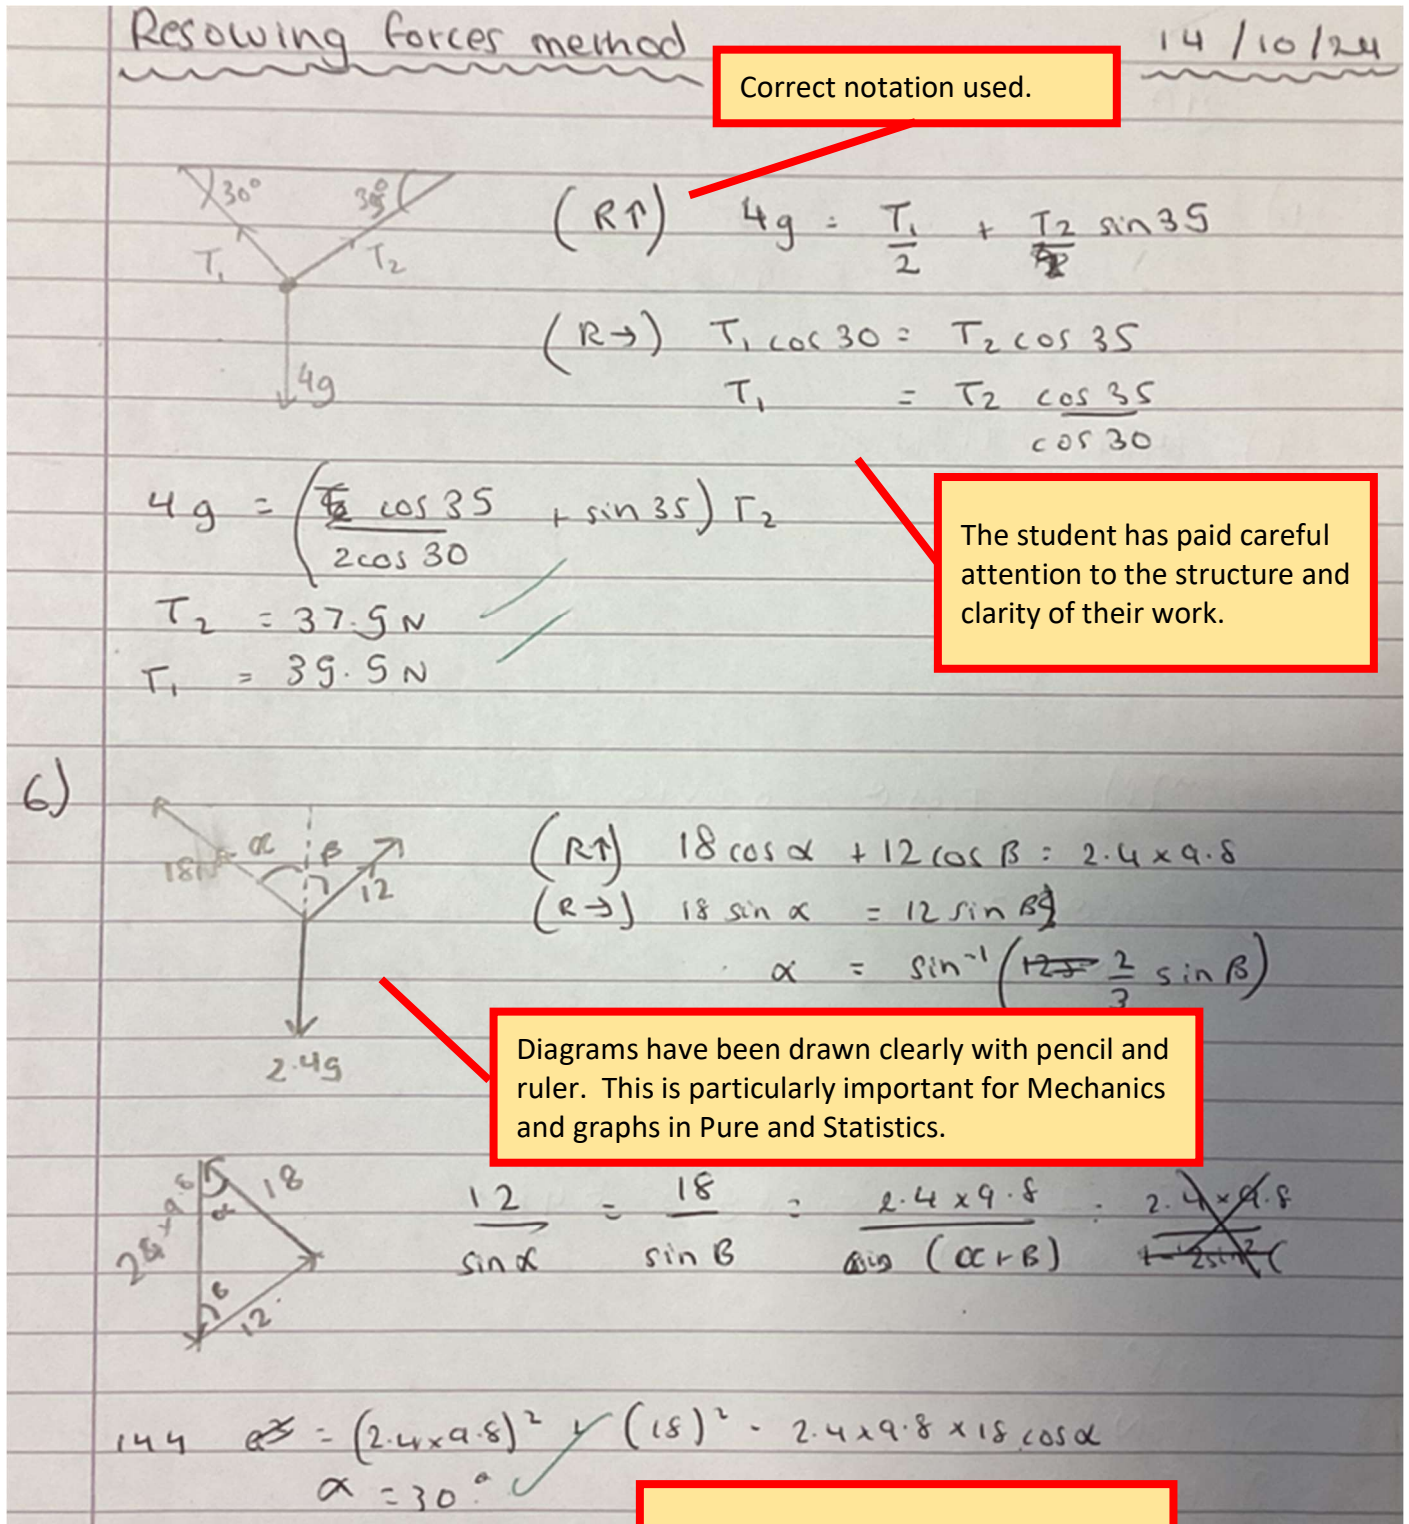 Resolving forces method 14/10/24
Correct notation used.
30° 35°
T₁ T₂
4g
(R↑) 4g = T₁/2 + T₂ sin 35
(R→) T₁ cos 30 = T₂ cos 35
T₁ = T₂ cos 35 / cos 30
4g = (cos 35 / 2cos 30 + sin 35) T₂
The student has paid careful
attention to the structure and
clarity of their work.
T₂ = 37.9 N
T₁ = 39.5 N
6)
18N α β 12
2.4g
(R↑) 18 cos α + 12 cos β = 2.4 × 9.8
(R→) 18 sin α = 12 sin β
α = sin⁻¹ (2/3 sin β)
Diagrams have been drawn clearly with pencil and
ruler. This is particularly important for Mechanics
and graphs in Pure and Statistics.
α 18
β 12
12 / sin α = 18 / sin β = 2.4 × 9.8 / sin (α + β) = 2.4 × 9.8
144 = (2.4 × 9.8)² + (18)² - 2.4 × 9.8 × 18 cos α
α = 30°